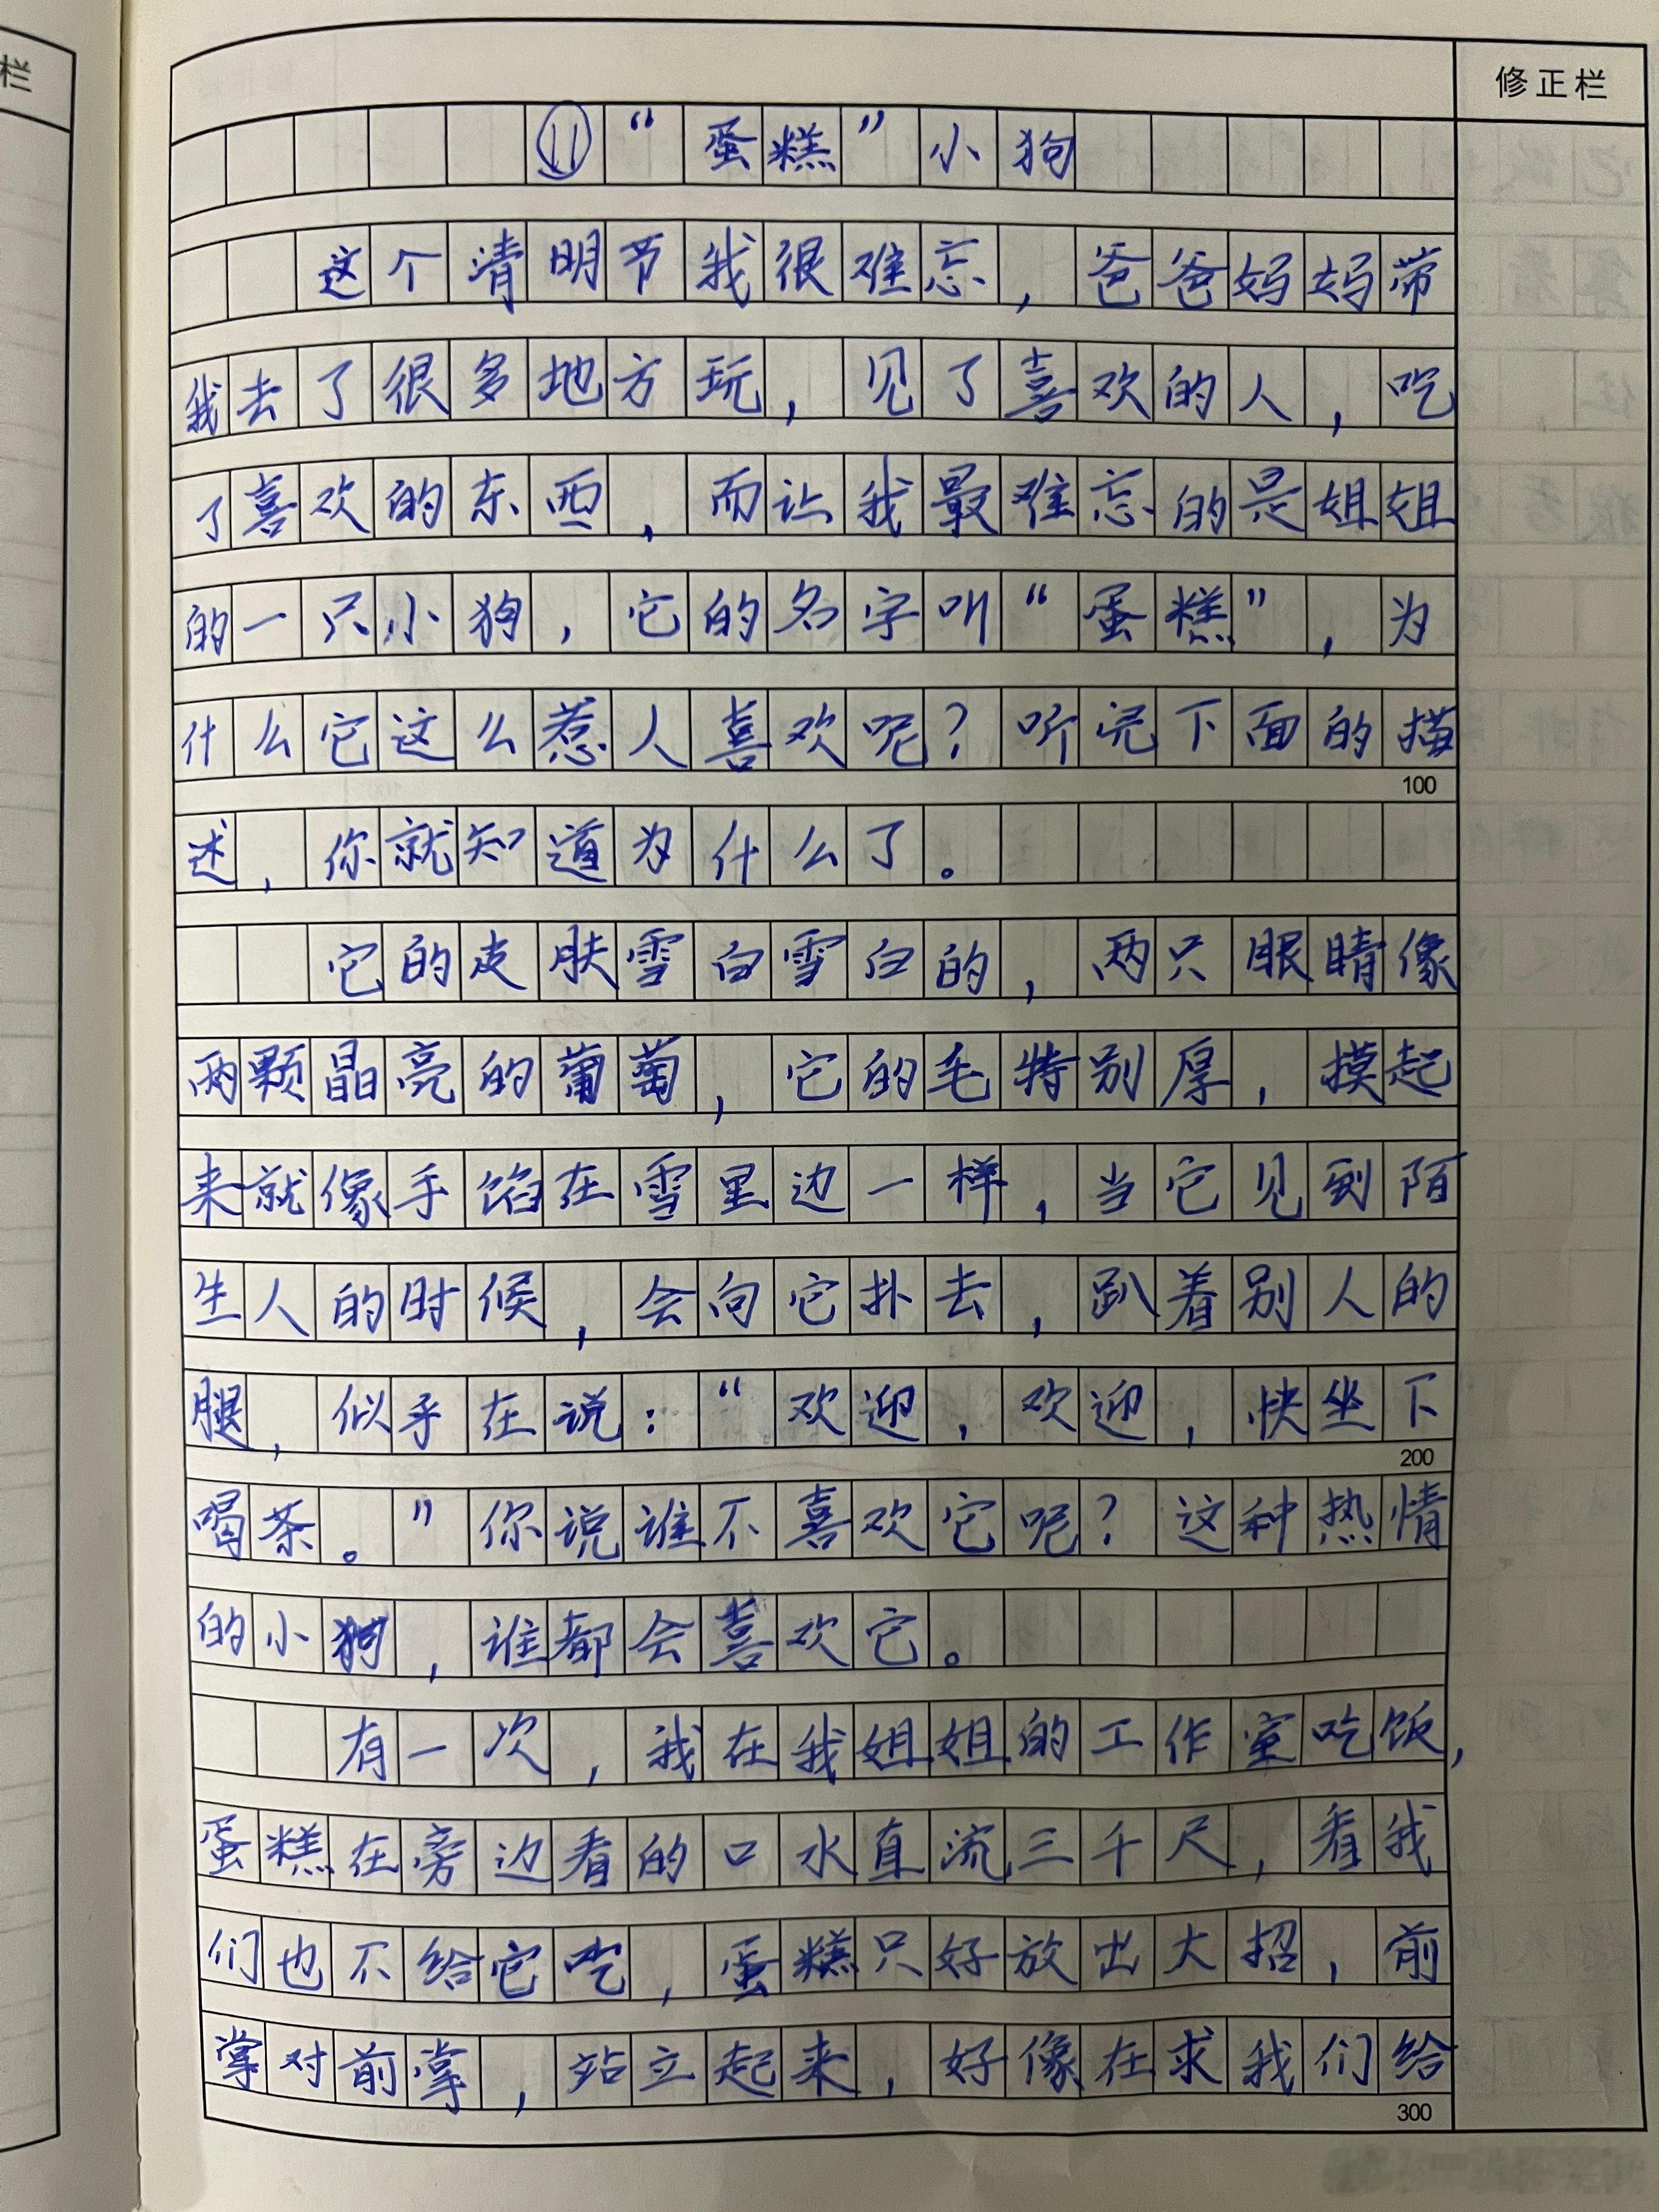 栏
修正栏
⑪“蛋糕”小狗
这个清明节我很难忘，爸爸妈妈带
我去了很多地方玩，见了喜欢的人，吃
了喜欢的东西，而让我最难忘的是姐姐
的一只小狗，它的名字叫“蛋糕”，为
什么它这么惹人喜欢呢？听完下面的描
100
述，你就知道为什么了。
它的皮肤雪白雪白的，两只眼睛像
两颗晶亮的葡萄，它的毛特别厚，摸起
来就像手馅在雪里边一样，当它见到陌
生人的时候，会向它扑去，趴着别人的
腿，似乎在说：“欢迎，欢迎，快坐下
200
喝茶。”你说谁不喜欢它呢？这种热情
的小狗，谁都会喜欢它。
有一次，我在我姐姐的工作室吃饭，
蛋糕在旁边看的口水直流三千尺，看我
们也不给它吃，蛋糕只好放出大招，前
掌对前掌，站立起来，好像在求我们给
300